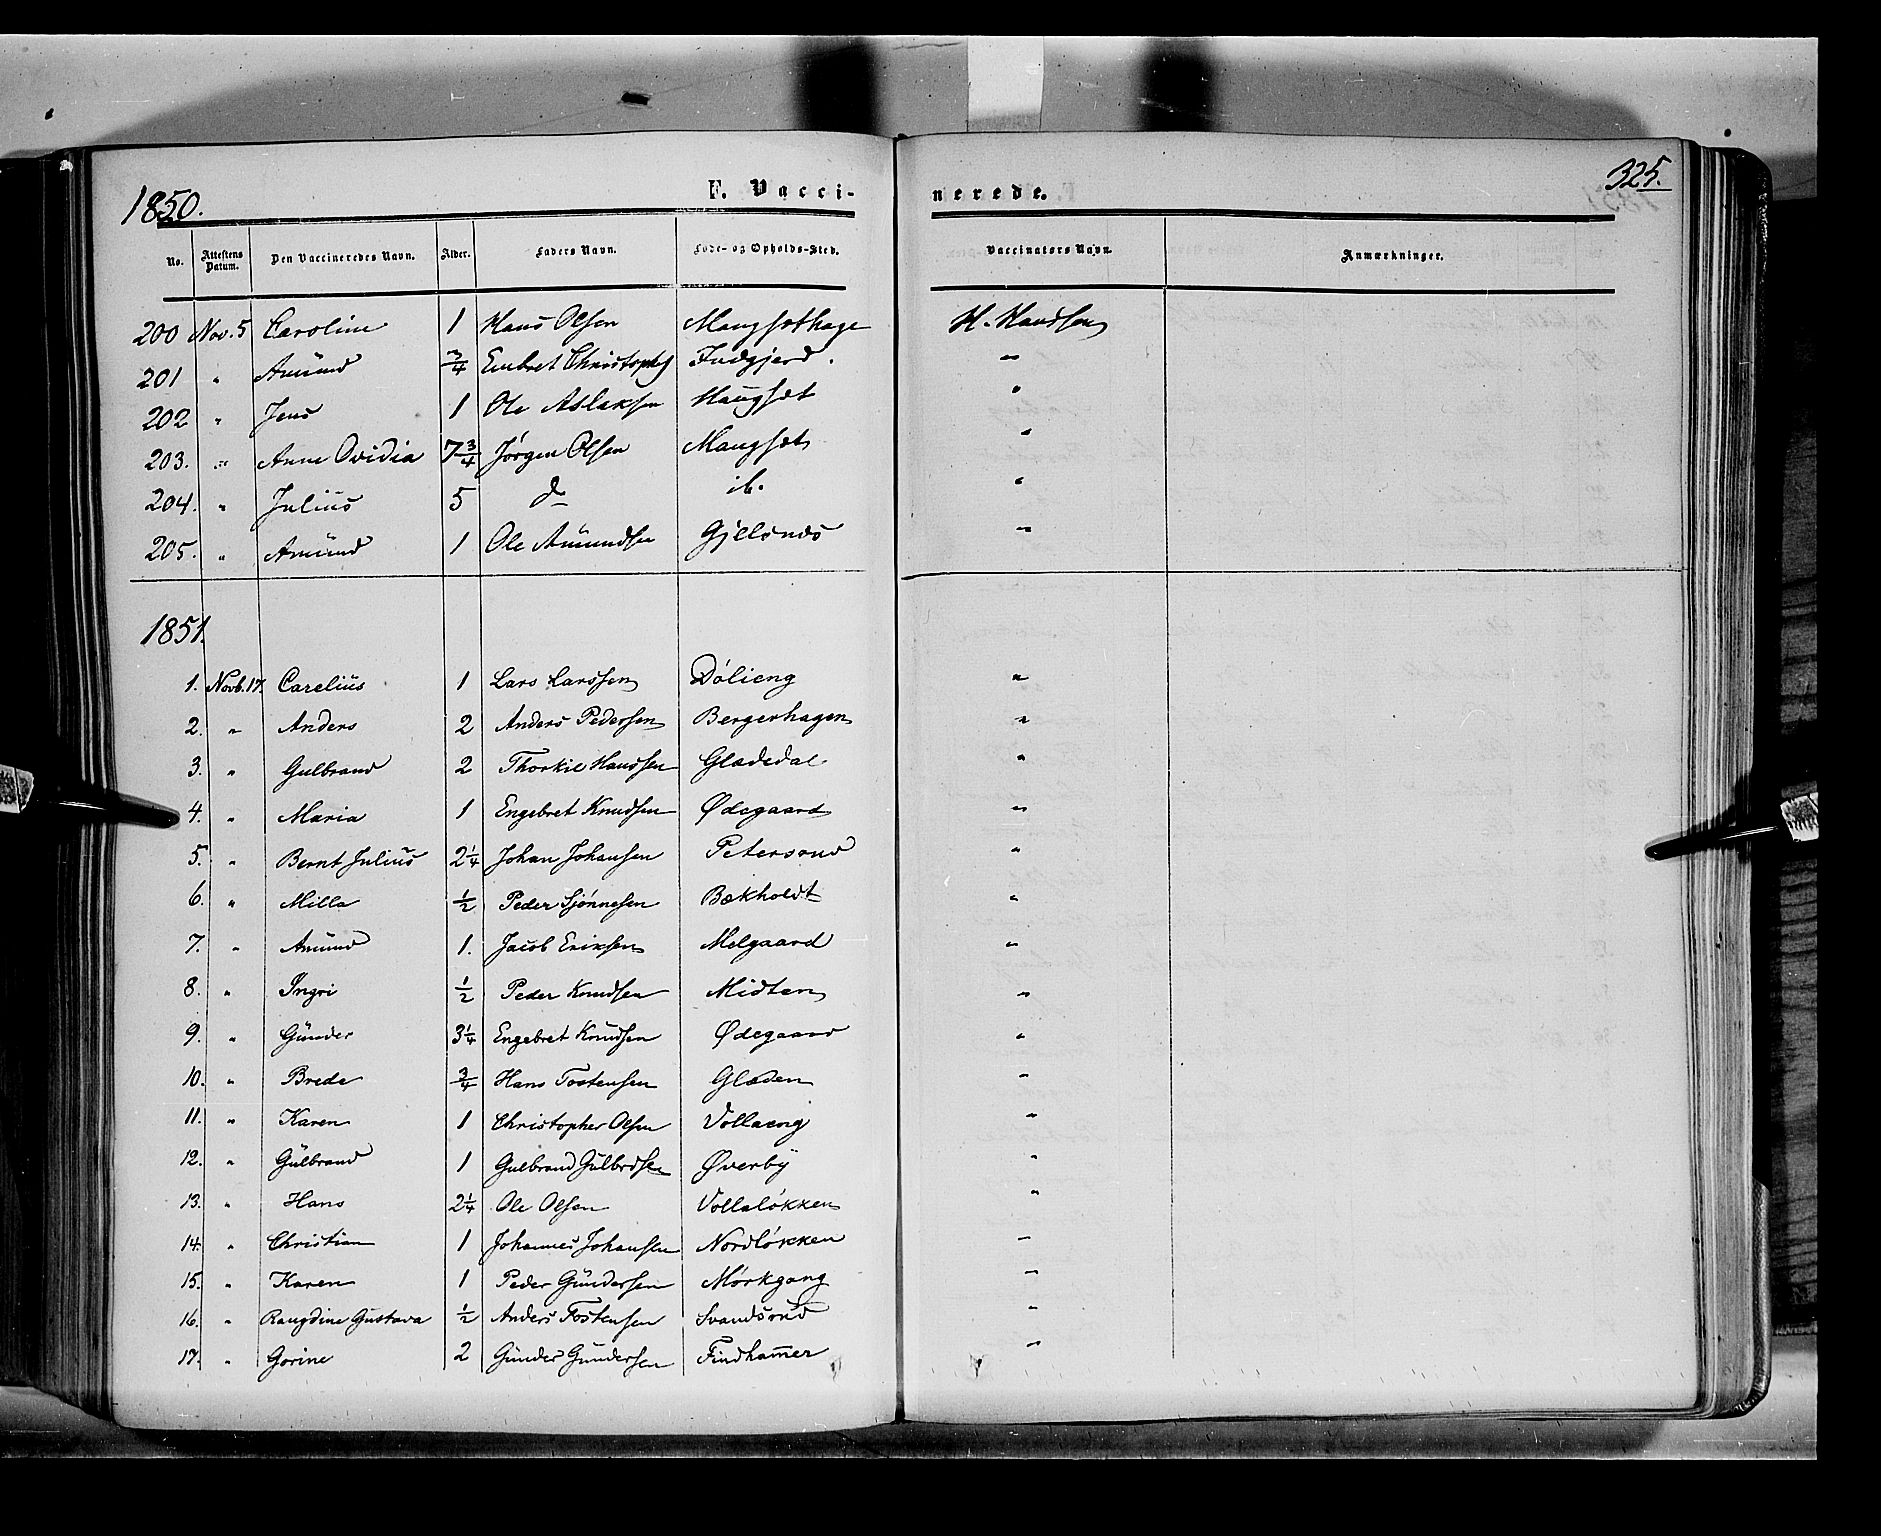 1850. F. Vacci- nerede. 325.
No. Attestens Datum. Den Vaccineredes Navn. Alder. Faders Navn. Føde- og Opholds-Sted. Vaccinators Navn. Anmærkninger.
200 Nov. 5 Caroline 1 Hans Olsen Maugsethage H. Hanssen
201 " Amund 3/4 Embret Christophs "
202 " Jens 1 Ole Aslaksen Haugset "
203. " Anne Ovidia 7 3/4 Jørgen Olsen Maugset "
204. " Julius 5 do ib. "
205. " Amund 1 Ole Amundsen "
1851.
1. Novb. 17. Carelius 1 Lars Larssen Dølieng "
2. " Anders 2 Anders Pedersen Bergerhagen "
3. " Gulbrand 2 Thorkil Hanssen Gladedal "
4. " Maria 1 Engebret Knudsen Ødegaard "
5. " Bernt Julius 2 1/4 Johan Johansen Petersrud "
6. " Milla 1/2 Peder Sjønnesen Bækholdt "
7. " Amund 1. Jacob Eriksen Melgaard "
8. " Ingri 1/2 Peder Knudsen Midten "
9. " Gunder 3 1/4 Engebret Knudsen Ødegaard "
10. " Brede 3/4 Hans Tostensen Gladen "
11. " Karen 1 Christopher Olsen Vollaeng "
12. " Gulbrand 1 Gulbrand Gulbrdsen Øverby "
13. " Hans 2 1/4 Ole Olsen Volleløkken "
14. " Christian 1 Johannes Johansen Nordløkken "
15. " Karen 1 Peder Gundersen Mørkgang "
16. " Raugdine Gustava 1/2 Anders Tostensen Svandsrud "
17. " Gorine 2 Gunder Gundersen Findhammer "